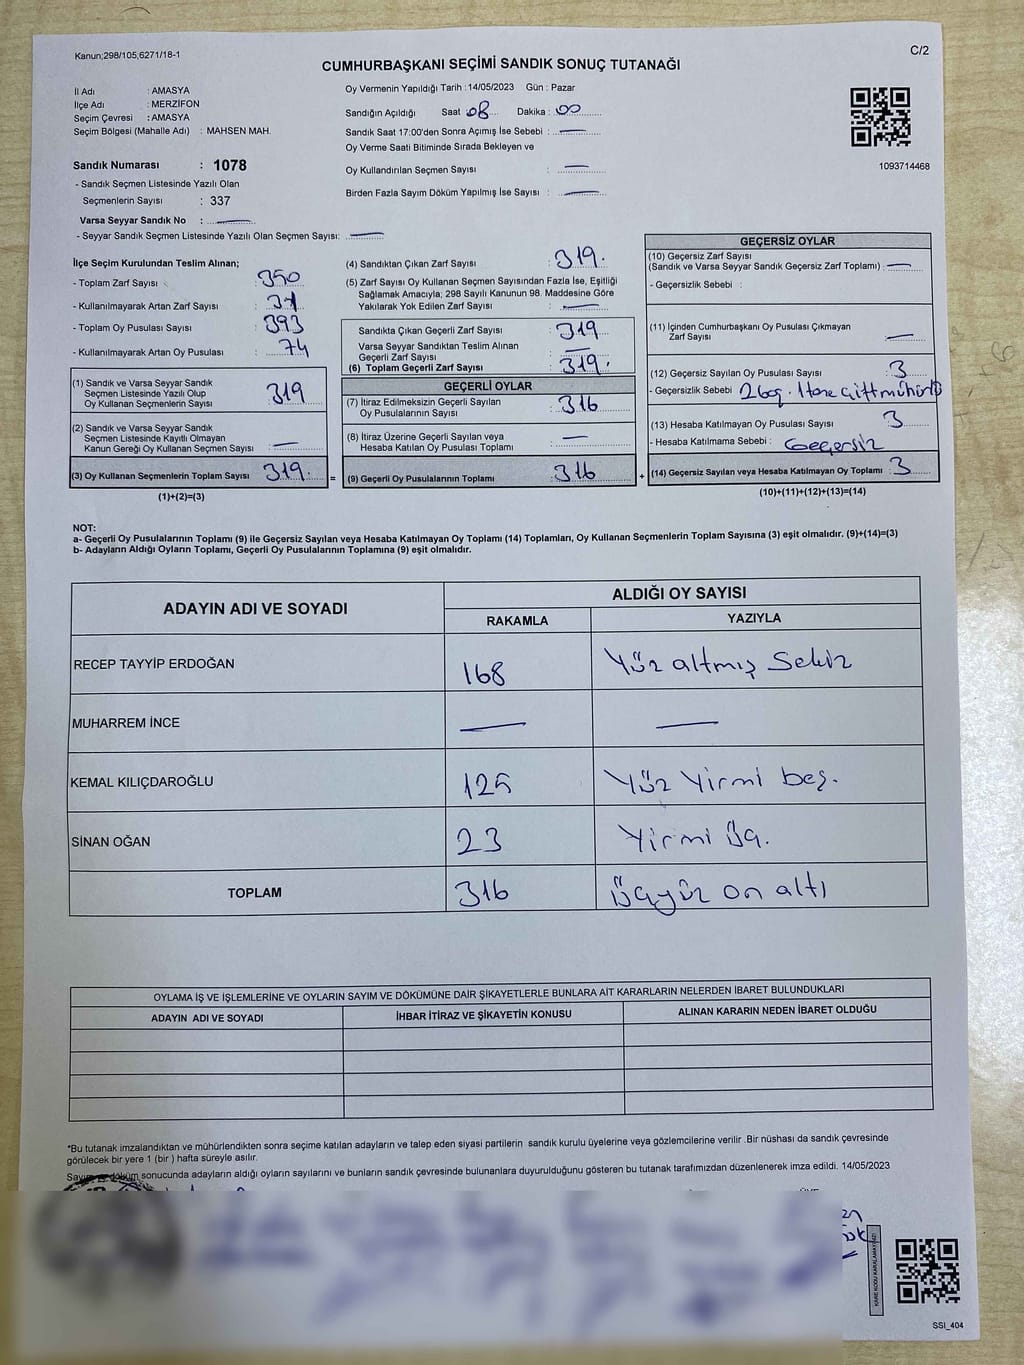 Kanun;298/105;6271/18-1
C/2
CUMHURBAŞKANI SEÇİMİ SANDIK SONUÇ TUTANAĞI
İl Adı : AMASYA
İlçe Adı : MERZİFON
Seçim Çevresi : AMASYA
Seçim Bölgesi (Mahalle Adı) : MAHSEN MAH.
Sandık Numarası : 1078
- Sandık Seçmen Listesinde Yazılı Olan
Seçmenlerin Sayısı : 337
Varsa Seyyar Sandık No :
- Seyyar Sandık Seçmen Listesinde Yazılı Olan Seçmen Sayısı:
Oy Vermenin Yapıldığı Tarih : 14/05/2023 Gün : Pazar
Sandığın Açıldığı Saat : 08 Dakika : 00
Sandık Saat 17:00'den Sonra Açımış İse Sebebi :
Oy Verme Saati Bitiminde Sırada Bekleyen ve
Oy Kullandırılan Seçmen Sayısı :
Birden Fazla Sayım Döküm Yapılmış İse Sayısı :
1093714468
İlçe Seçim Kurulundan Teslim Alınan;
- Toplam Zarf Sayısı : 350
- Kullanılmayarak Artan Zarf Sayısı : 31
- Toplam Oy Pusulası Sayısı : 393
- Kullanılmayarak Artan Oy Pusulası : 74
(1) Sandık ve Varsa Seyyar Sandık
Seçmen Listesinde Yazılı Olup
Oy Kullanan Seçmenlerin Sayısı 319
(2) Sandık ve Varsa Seyyar Sandık
Seçmen Listesinde Kayıtlı Olmayan
Kanun Gereği Oy Kullanan Seçmen Sayısı
(3) Oy Kullanan Seçmenlerin Toplam Sayısı 319.
(1)+(2)=(3)
(4) Sandıktan Çıkan Zarf Sayısı : 319.
(5) Zarf Sayısı Oy Kullanan Seçmen Sayısından Fazla İse, Eşitliği
Sağlamak Amacıyla; 298 Sayılı Kanunun 98. Maddesine Göre
Yakılarak Yok Edilen Zarf Sayısı :
Sandıkta Çıkan Geçerli Zarf Sayısı : 319
Varsa Seyyar Sandıktan Teslim Alınan
Geçerli Zarf Sayısı :
(6) Toplam Geçerli Zarf Sayısı : 319.
GEÇERLİ OYLAR
(7) İtiraz Edilmeksizin Geçerli Sayılan
Oy Pusulalarının Sayısı : 316
(8) İtiraz Üzerine Geçerli Sayılan veya
Hesaba Katılan Oy Pusulası Toplamı :
= (9) Geçerli Oy Pusulalarının Toplamı : 316
GEÇERSİZ OYLAR
(10) Geçersiz Zarf Sayısı
(Sandık ve Varsa Seyyar Sandık Geçersiz Zarf Toplamı) :
- Geçersizlik Sebebi :
(11) İçinden Cumhurbaşkanı Oy Pusulası Çıkmayan
Zarf Sayısı :
(12) Geçersiz Sayılan Oy Pusulası Sayısı : 3
- Geçersizlik Sebebi : 2 boş. 1 tane çift mühürlü
(13) Hesaba Katılmayan Oy Pusulası Sayısı : 3
- Hesaba Katılmama Sebebi : Geçersiz
+ (14) Geçersiz Sayılan veya Hesaba Katılmayan Oy Toplamı : 3
(10)+(11)+(12)+(13)=(14)
NOT:
a- Geçerli Oy Pusulalarının Toplamı (9) ile Geçersiz Sayılan veya Hesaba Katılmayan Oy Toplamı (14) Toplamları, Oy Kullanan Seçmenlerin Toplam Sayısına (3) eşit olmalıdır. (9)+(14)=(3)
b- Adayların Aldığı Oyların Toplamı, Geçerli Oy Pusulalarının Toplamına (9) eşit olmalıdır.
ADAYIN ADI VE SOYADI
ALDIĞI OY SAYISI
RAKAMLA YAZIYLA
RECEP TAYYİP ERDOĞAN 168 Yüz altmış Sekiz
MUHARREM İNCE
KEMAL KILIÇDAROĞLU 125 Yüz Yirmi beş.
SİNAN OĞAN 23 Yirmi üç.
TOPLAM 316 üçyüz on altı
OYLAMA İŞ VE İŞLEMLERİNE VE OYLARIN SAYIM VE DÖKÜMÜNE DAİR ŞİKAYETLERLE BUNLARA AİT KARARLARIN NELERDEN İBARET BULUNDUKLARI
ADAYIN ADI VE SOYADI İHBAR İTİRAZ VE ŞİKAYETİN KONUSU ALINAN KARARIN NEDEN İBARET OLDUĞU
*Bu tutanak imzalandıktan ve mühürlendikten sonra seçime katılan adayların ve talep eden siyasi partilerin sandık kurulu üyelerine veya gözlemcilerine verilir .Bir nüshası da sandık çevresinde
görülecek bir yere 1 (bir ) hafta süreyle asılır.
Sayım ve döküm sonucunda adayların aldığı oyların sayılarını ve bunların sandık çevresinde bulunanlara duyurulduğunu gösteren bu tutanak tarafımızdan düzenlenerek imza edildi. 14/05/2023
SSI_404